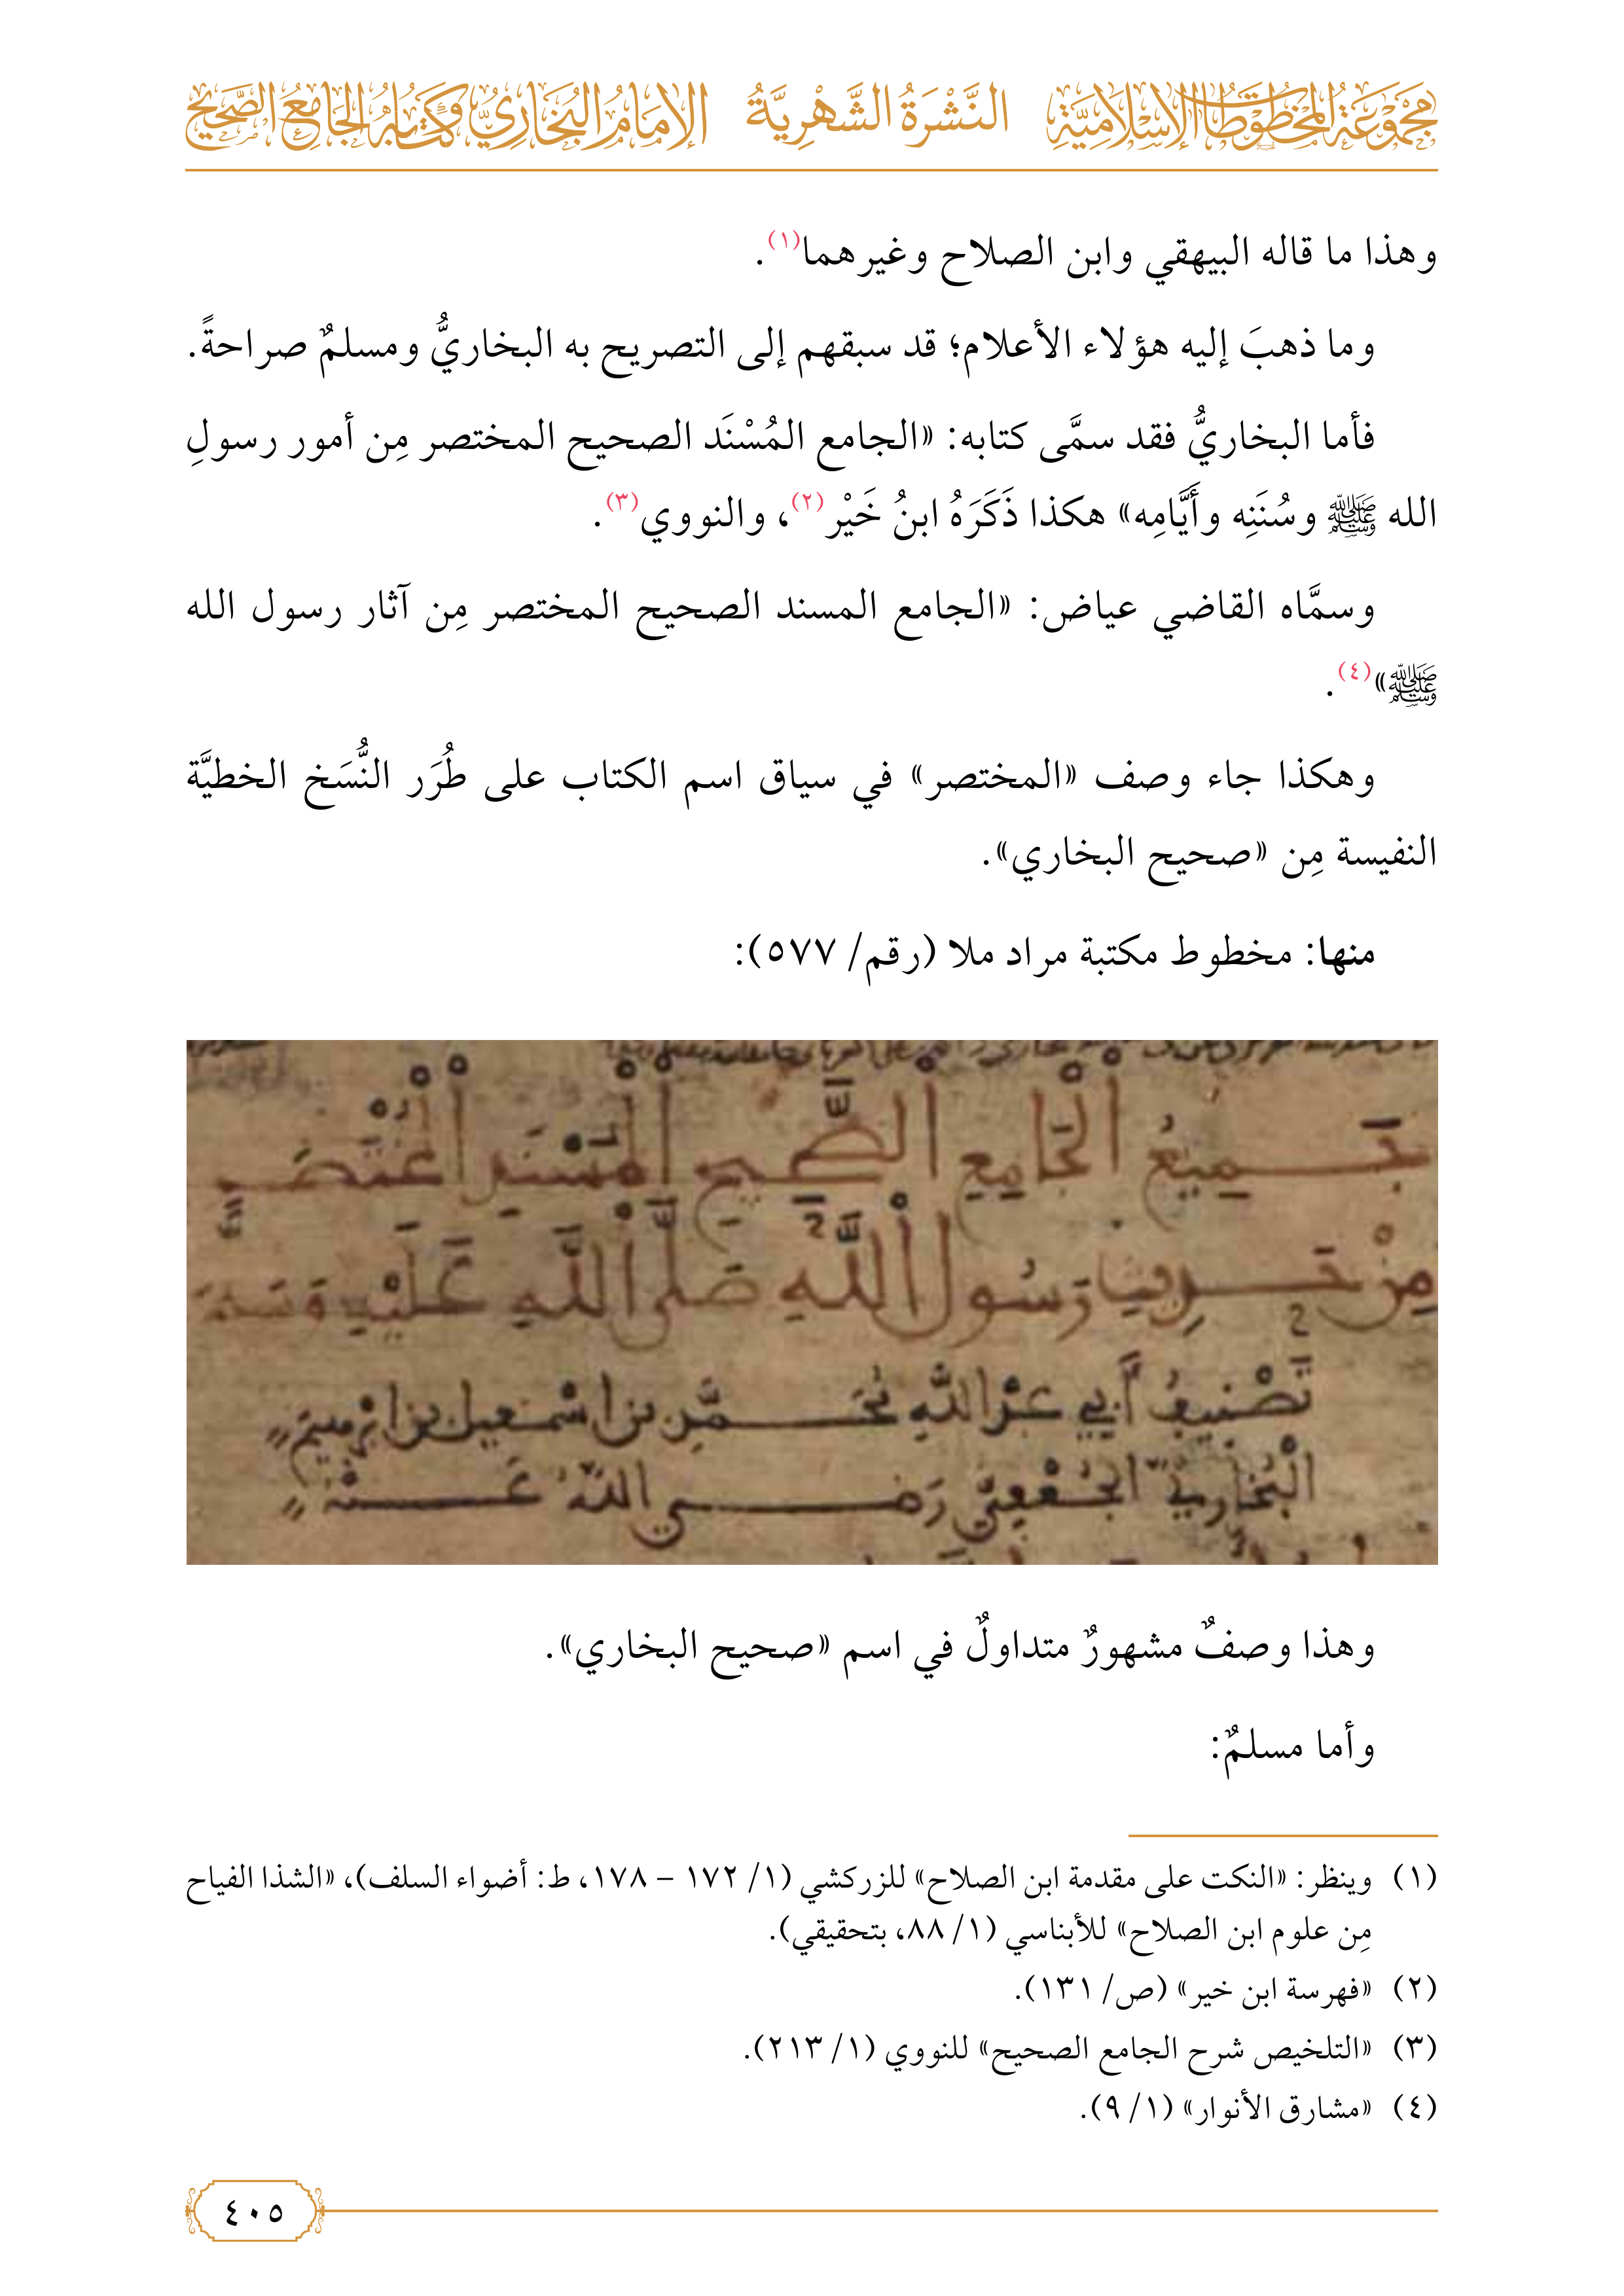 مَجْمُوعَةُ المَخْطُوطَاتِ الإِسْلَامِيَّةِ النَّشْرَةُ الشَّهْرِيَّةُ الإِمَامُ البُخَارِيُّ وَكِتَابُهُ الجَامِعُ الصَّحِيحُ
وهذا ما قاله البيهقي وابن الصلاح وغيرهما(١).
وما ذهبَ إليه هؤلاء الأعلام؛ قد سبقهم إلى التصريح به البخاريُّ ومسلمٌ صراحةً.
فأما البخاريُّ فقد سمَّى كتابه: «الجامع المُسْنَد الصحيح المختصر مِن أمور رسولِ
الله ﷺ وسُنَنِه وأَيَّامِه» هكذا ذَكَرَهُ ابنُ خَيْر(٢)، والنووي(٣).
وسمَّاه القاضي عياض: «الجامع المسند الصحيح المختصر مِن آثار رسول الله
ﷺ»(٤).
وهكذا جاء وصف «المختصر» في سياق اسم الكتاب على طُرَر النُّسَخ الخطيَّة
النفيسة مِن «صحيح البخاري».
منها: مخطوط مكتبة مراد ملا (رقم/ ٥٧٧):
جَمِيعُ الْجَامِعِ الصَّحِيحِ الْمُسْنَدِ الْمُخْتَصَرِ
مِنْ حَدِيثِ رَسُولِ اللَّهِ صَلَّى اللَّهُ عَلَيْهِ وَسَلَّمَ
تَصْنِيفُ أَبِي عَبْدِ اللَّهِ مُحَمَّدِ بْنِ اسْمَعِيلَ بْنِ ابْرَهِيمَ
الْبُخَارِيِّ الْجُعْفِيِّ رَضِيَ اللَّهُ عَنْهُ
وهذا وصفٌ مشهورٌ متداولٌ في اسم «صحيح البخاري».
وأما مسلمٌ:
(١) وينظر: «النكت على مقدمة ابن الصلاح» للزركشي (١/ ١٧٢ – ١٧٨، ط: أضواء السلف)، «الشذا الفياح
مِن علوم ابن الصلاح» للأبناسي (١/ ٨٨، بتحقيقي).
(٢) «فهرسة ابن خير» (ص/ ١٣١).
(٣) «التلخيص شرح الجامع الصحيح» للنووي (١/ ٢١٣).
(٤) «مشارق الأنوار» (١/ ٩).
٤٠٥